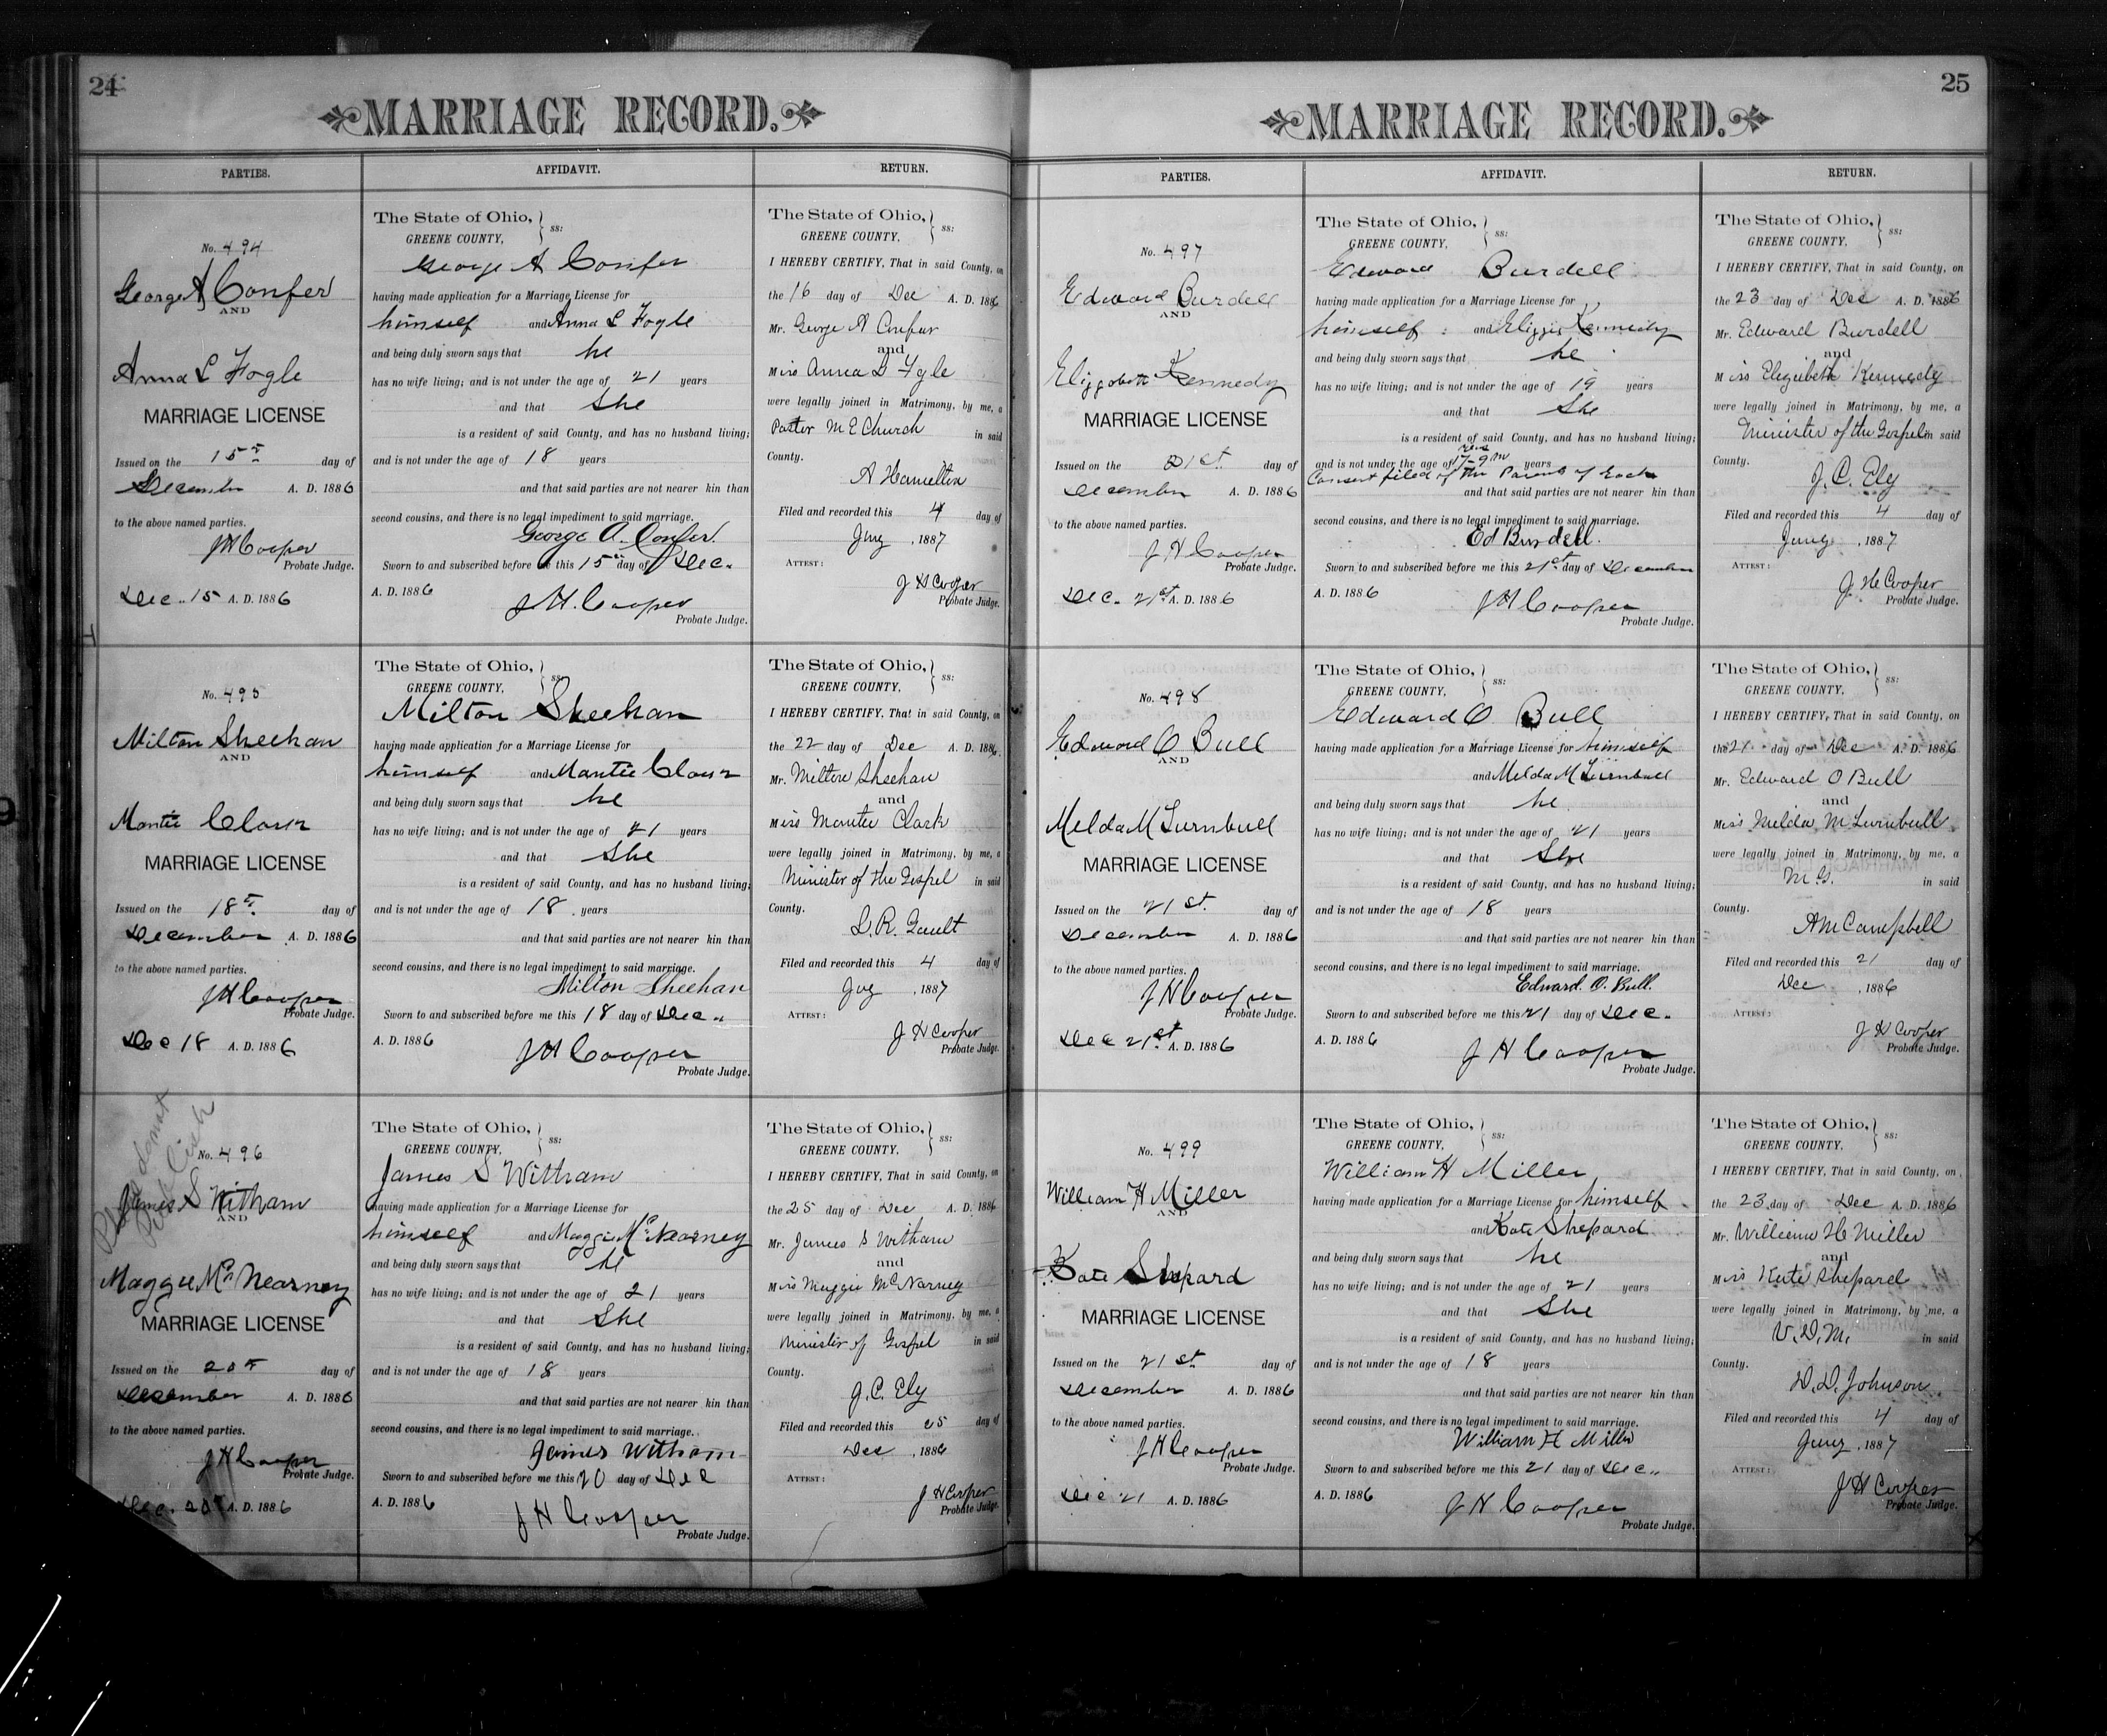 24
MARRIAGE RECORD.
PARTIES.
AFFIDAVIT.
RETURN.
No. 494
George A Confer
AND
Anna L Fogle
MARRIAGE LICENSE
Issued on the 15th day of
December A. D. 1886
to the above named parties.
J H Cooper
Probate Judge.
Dec. 15 A. D. 1886
The State of Ohio,
GREENE COUNTY, ss:
George A Confer
having made application for a Marriage License for
himself and Anna L Fogle
and being duly sworn says that he
has no wife living; and is not under the age of 21 years
and that She
is a resident of said County, and has no husband living;
and is not under the age of 18 years
and that said parties are not nearer kin than
second cousins, and there is no legal impediment to said marriage.
George A. Confer
Sworn to and subscribed before me this 15th day of Dec.
A. D. 1886
J H. Cooper
Probate Judge.
The State of Ohio,
GREENE COUNTY, ss:
I HEREBY CERTIFY, That in said County, on
the 16 day of Dec A. D. 1886
Mr. George A Confer
and
Miss Anna L Fogle
were legally joined in Matrimony, by me, a
Pastor M E Church in said
County.
A Hamilton
Filed and recorded this 4 day of
Jany, 1887
ATTEST:
J H Cooper
Probate Judge.
No. 495
Milton Sheehan
AND
Mantie Clark
MARRIAGE LICENSE
Issued on the 18th day of
December A. D. 1886
to the above named parties.
J H Cooper
Probate Judge.
Dec 18 A. D. 1886
The State of Ohio,
GREENE COUNTY, ss:
Milton Sheehan
having made application for a Marriage License for
himself and Mantie Clark
and being duly sworn says that he
has no wife living; and is not under the age of 21 years
and that She
is a resident of said County, and has no husband living;
and is not under the age of 18 years
and that said parties are not nearer kin than
second cousins, and there is no legal impediment to said marriage.
Milton Sheehan
Sworn to and subscribed before me this 18 day of Dec.
A. D. 1886
J H Cooper
Probate Judge.
The State of Ohio,
GREENE COUNTY, ss:
I HEREBY CERTIFY, That in said County, on
the 22 day of Dec A. D. 1886
Mr. Milton Sheehan
and
Miss Mantie Clark
were legally joined in Matrimony, by me, a
Minister of the Gospel in said
County.
L. R. Gault
Filed and recorded this 4 day of
Jay, 1887
ATTEST:
J H Cooper
Probate Judge.
do not
No. 496
James S Witham
AND
Maggie Mc Nearney
MARRIAGE LICENSE
Issued on the 20th day of
December A. D. 1886
to the above named parties.
J H Cooper
Probate Judge.
Dec. 20th A. D. 1886
The State of Ohio,
GREENE COUNTY, ss:
James S Witham
having made application for a Marriage License for
himself and Maggie Mc Nearney
and being duly sworn says that he
has no wife living; and is not under the age of 21 years
and that She
is a resident of said County, and has no husband living;
and is not under the age of 18 years
and that said parties are not nearer kin than
second cousins, and there is no legal impediment to said marriage.
James Witham
Sworn to and subscribed before me this 20 day of Dec
A. D. 1886
J H Cooper
Probate Judge.
The State of Ohio,
GREENE COUNTY, ss:
I HEREBY CERTIFY, That in said County, on
the 25 day of Dec A. D. 1886
Mr. James S Witham
and
Miss Maggie Mc Narney
were legally joined in Matrimony, by me, a
Minister of Gospel in said
County.
J. C. Ely
Filed and recorded this 25 day of
Dec, 1886
ATTEST:
J H Cooper
Probate Judge.
25
MARRIAGE RECORD.
PARTIES.
AFFIDAVIT.
RETURN.
No. 497
Edward Burdell
AND
Elizzabeth Kennedy
MARRIAGE LICENSE
Issued on the 21st day of
December A. D. 1886
to the above named parties.
J H Cooper
Probate Judge.
Dec. 21st A. D. 1886
The State of Ohio,
GREENE COUNTY, ss:
Edward Burdell
having made application for a Marriage License for
himself and Lizzie Kennedy
and being duly sworn says that he
has no wife living; and is not under the age of 19 years
and that She
is a resident of said County, and has no husband living;
and is not under the age of 17-9m years
Consent filed of the Parents of Each
and that said parties are not nearer kin than
second cousins, and there is no legal impediment to said marriage.
Ed Burdell.
Sworn to and subscribed before me this 21st day of December
A. D. 1886
J H Cooper
Probate Judge.
The State of Ohio,
GREENE COUNTY, ss:
I HEREBY CERTIFY, That in said County, on
the 23 day of Dec A. D. 1886
Mr. Edward Burdell
and
Miss Elizabeth Kennedy
were legally joined in Matrimony, by me, a
Minister of the Gospel in said
County.
J. C. Ely
Filed and recorded this 4 day of
Jany, 1887
ATTEST:
J. H Cooper
Probate Judge.
No. 498
Edward O Bull
AND
Melda M Turnbull
MARRIAGE LICENSE
Issued on the 21st day of
December A. D. 1886
to the above named parties.
J H Cooper
Probate Judge.
Dec 21st A. D. 1886
The State of Ohio,
GREENE COUNTY, ss:
Edward O Bull
having made application for a Marriage License for himself
and Melda M Turnbull
and being duly sworn says that he
has no wife living; and is not under the age of 21 years
and that She
is a resident of said County, and has no husband living;
and is not under the age of 18 years
and that said parties are not nearer kin than
second cousins, and there is no legal impediment to said marriage.
Edward. O. Bull.
Sworn to and subscribed before me this 21 day of Dec.
A. D. 1886
J H Cooper
Probate Judge.
The State of Ohio,
GREENE COUNTY, ss:
I HEREBY CERTIFY, That in said County, on
the 21 day of Dec A. D. 1886
Mr. Edward O Bull
and
Miss Melda M Turnbull
were legally joined in Matrimony, by me, a
M. G. in said
County.
A M Campbell
Filed and recorded this 21 day of
Dec, 1886
ATTEST:
J H Cooper
Probate Judge.
No. 499
William H Miller
AND
Kate Shepard
MARRIAGE LICENSE
Issued on the 21st day of
December A. D. 1886
to the above named parties.
J H Cooper
Probate Judge.
Dec 21 A. D. 1886
The State of Ohio,
GREENE COUNTY, ss:
William H Miller
having made application for a Marriage License for himself
and Kate Shepard
and being duly sworn says that he
has no wife living; and is not under the age of 21 years
and that She
is a resident of said County, and has no husband living;
and is not under the age of 18 years
and that said parties are not nearer kin than
second cousins, and there is no legal impediment to said marriage.
William H Miller
Sworn to and subscribed before me this 21 day of Dec.
A. D. 1886
J H Cooper
Probate Judge.
The State of Ohio,
GREENE COUNTY, ss:
I HEREBY CERTIFY, That in said County, on
the 23 day of Dec A. D. 1886
Mr. William H Miller
and
Miss Kate Shepard
were legally joined in Matrimony, by me, a
V. D. M. in said
County.
D. D. Johnson
Filed and recorded this 4 day of
Jany, 1887
ATTEST:
J H Cooper
Probate Judge.